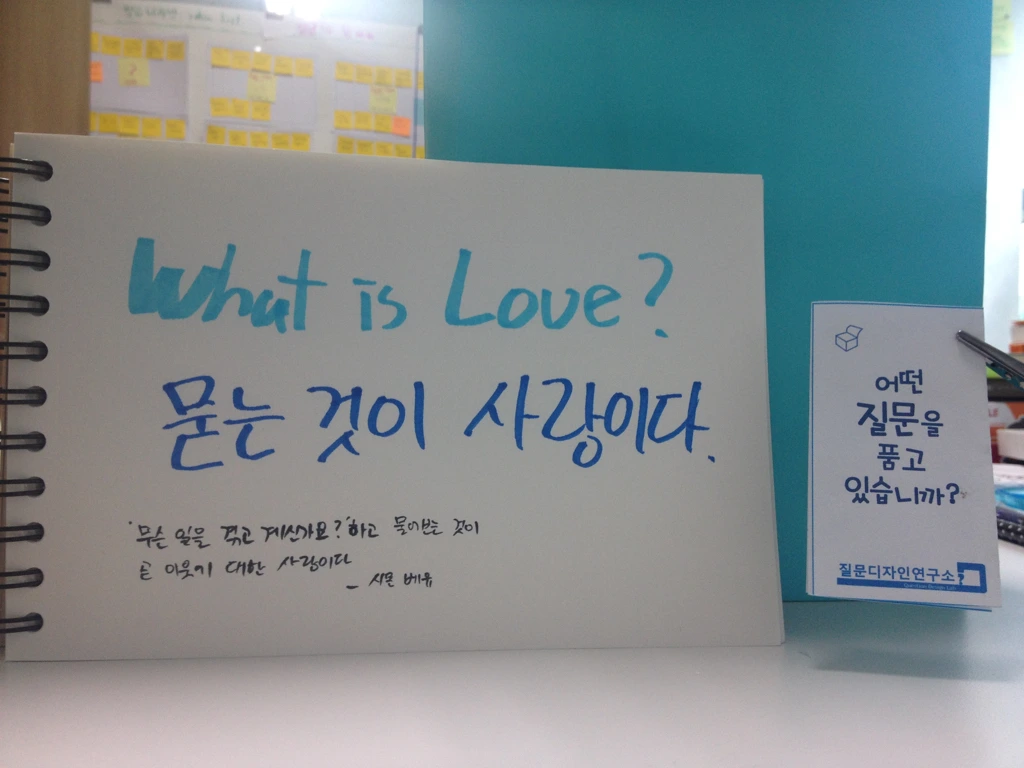 What is Love?
묻는 것이 사랑이다.
"무슨 일을 겪고 계신가요?"하고 물어보는 것이
곧 이웃에 대한 사랑이다
- 시몬 베유
어떤
질문을
품고
있습니까?
질문디자인연구소
Question Design Lab